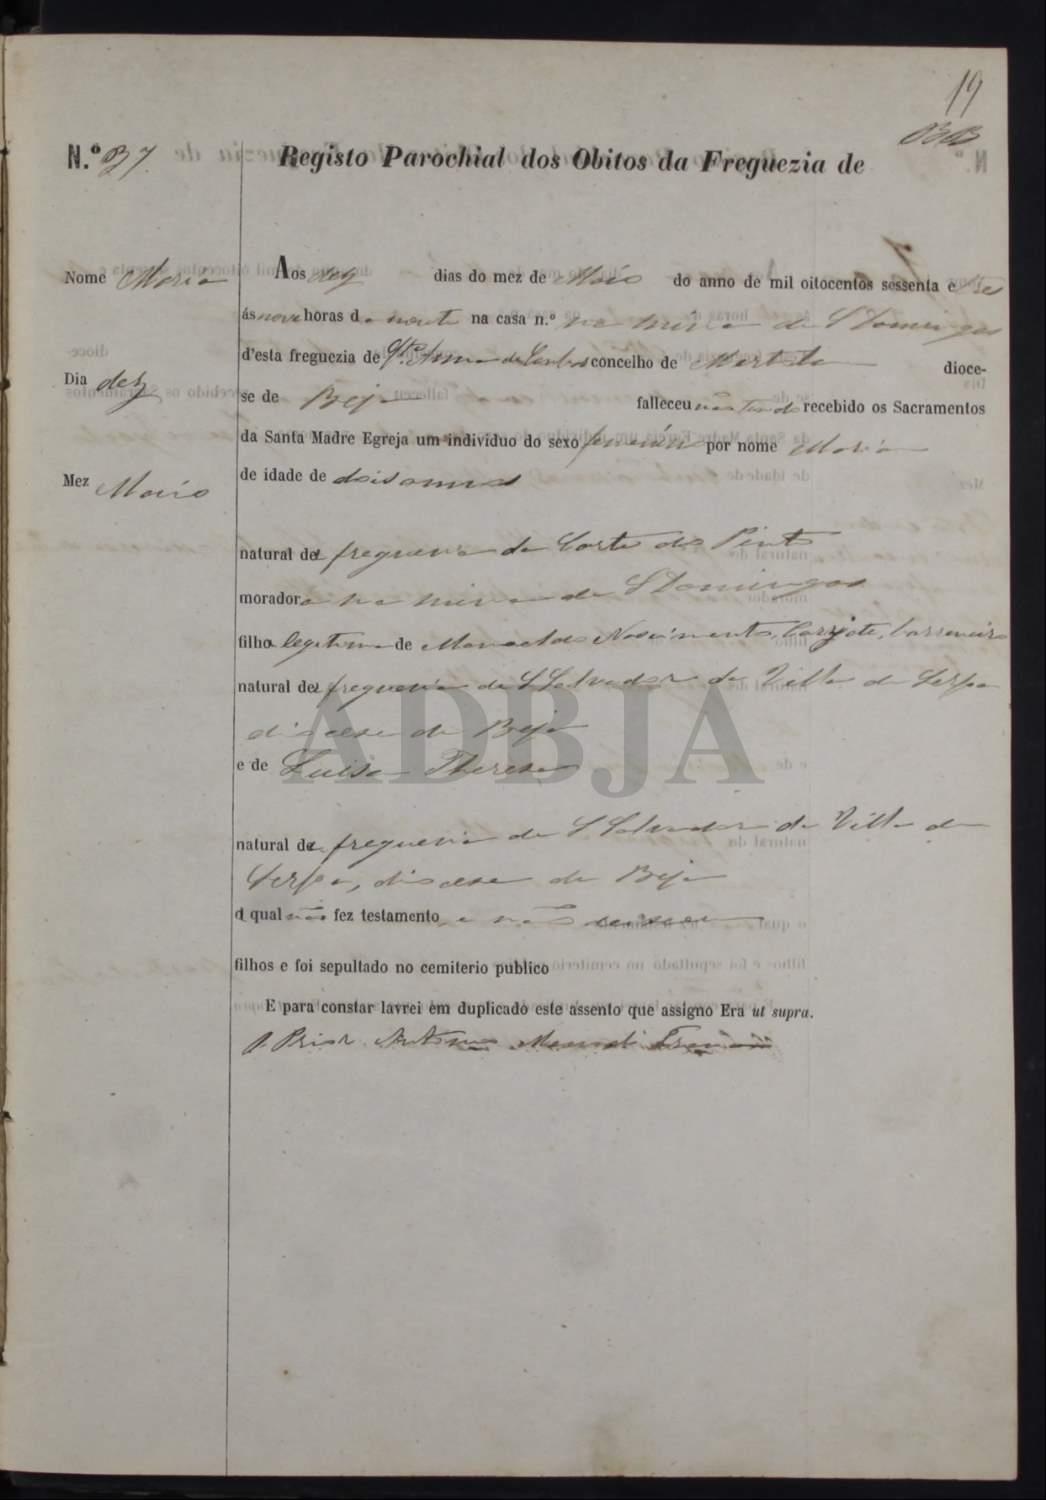 19
N.º 37. Registo Parochial dos Obitos da Freguezia de
Nome Maria
Dia dez
Mez Maio
Aos dez dias do mez de Maio do anno de mil oitocentos sessenta e tres
ás nove horas da noute na casa n.º na mina de S Domingos
d'esta freguezia de Sta. Anna de Cambas concelho de Mertola dioce-
se de Beja falleceu não tendo recebido os Sacramentos
da Santa Madre Egreja um individuo do sexo femenino por nome Maria
de idade de dois annos
natural da freguesia da Corte do Pinto
moradora na mina de S Domingos
filha legitima de Manoel do Nascimento, barreneiro
natural da freguesia de S Salvador da Villa de Serpa
diocese de Beja
e de Luisa Theresa
natural da freguesia de S Salvador da Villa de
Serpa, diocese de Beja
a qual não fez testamento, e não deixou
filhos e foi sepultado no cemiterio publico
E para constar lavrei em duplicado este assento que assigno Era ut supra.
O Prior Antonio Manoel
ADBJA